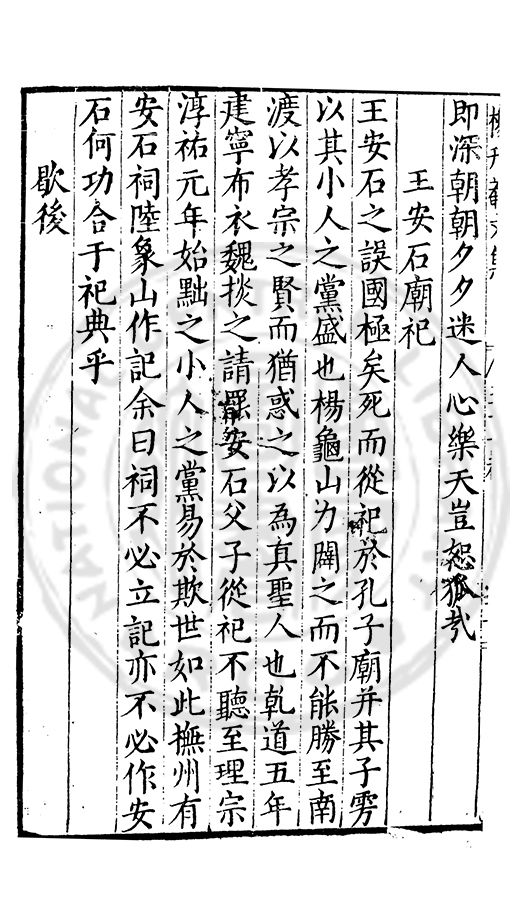 即深朝朝夕夕迷人心樂天豈恕狐㦲
王安石廟祀
王安石之誤國極矣死而從祀於孔子廟并其子雱
以其小人之黨盛也楊龜山力闢之而不能勝至南
渡以孝宗之賢而猶惑之以為真聖人也乾道五年
建寧布衣魏掞之請罷安石父子從祀不聽至理宗
淳祐元年始黜之小人之黨易於欺世如此撫州有
安石祠陸象山作記余曰祠不必立記亦不必作安
石何功合于祀典乎
歇後